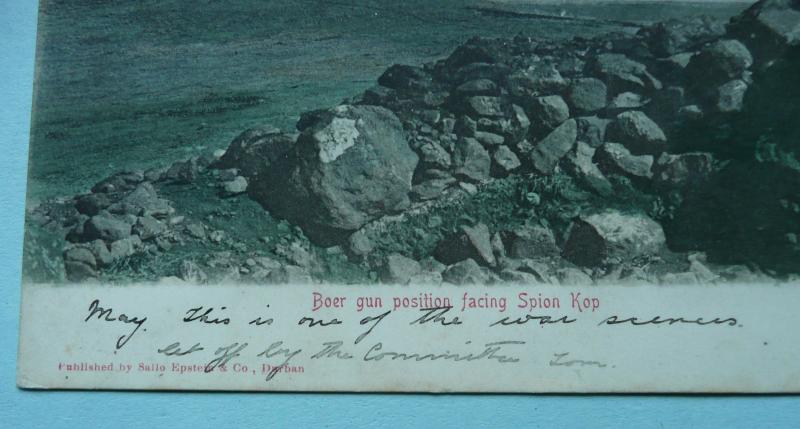 Boer gun position facing Spion Kop
May. This is one of the war scenes.
let off by the Committee Tom.
Published by Sallo Epstein & Co., Durban